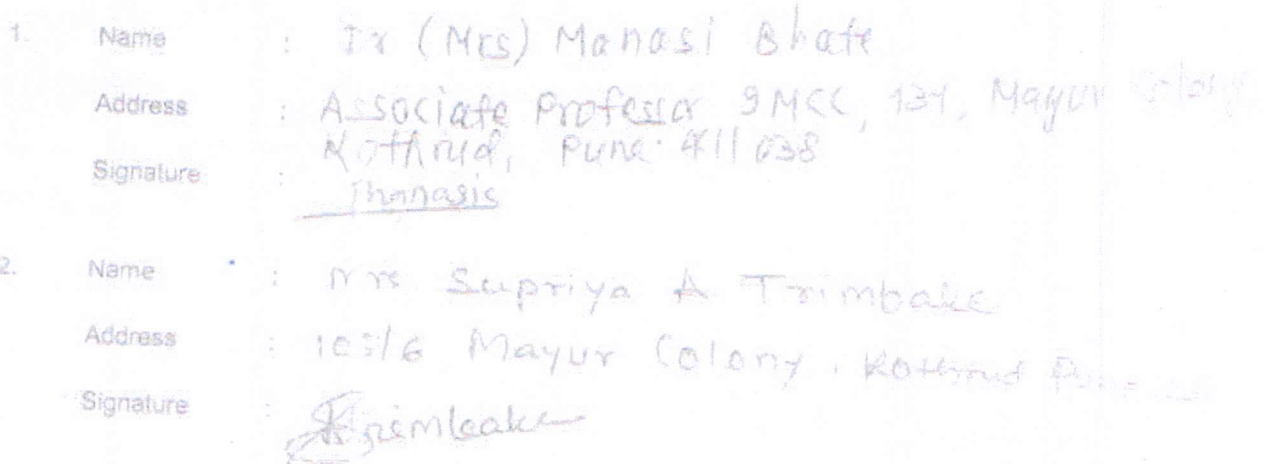 1. Name : Dr (Mrs) Manasi Bhate
Address : Associate Professor IMCC, 131, Mayur Colony
Kothrud, Pune 411 038
Signature :
2. Name : Mrs Supriya A Trimbake
Address : Mayur Colony, Kothrud
Signature : Trimbake